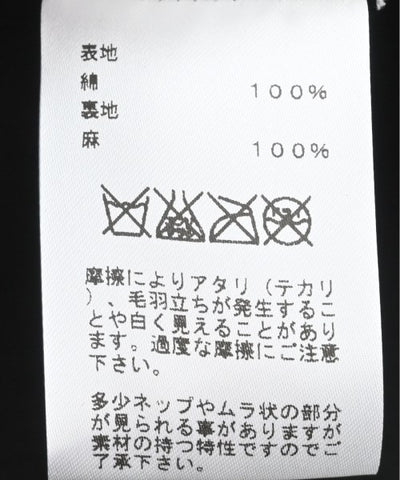 表地
綿 100%
裏地
麻 100%
摩擦によりアタリ(テカリ
)、毛羽立ちが発生するこ
とや白く見えることがあり
ます。過度な摩擦にご注意
下さい。
多少ネップやムラ状の部分
が見られる事がありますが
素材の持つ特性ですのでご
了承下さい。